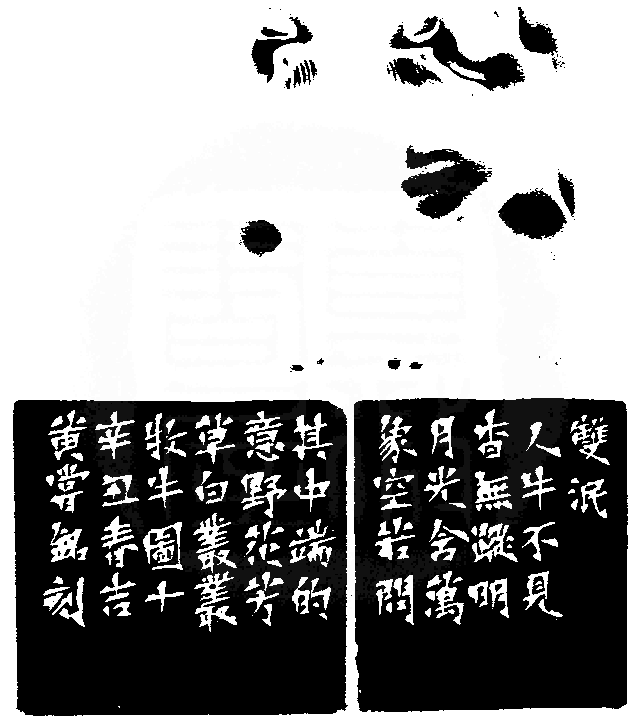 雙泯
人牛不見
杳無蹤明
月光含萬
象空若問
其中端的
意野花芳
草自叢叢
牧牛圖十
辛丑春吉
黄嘗銘刻